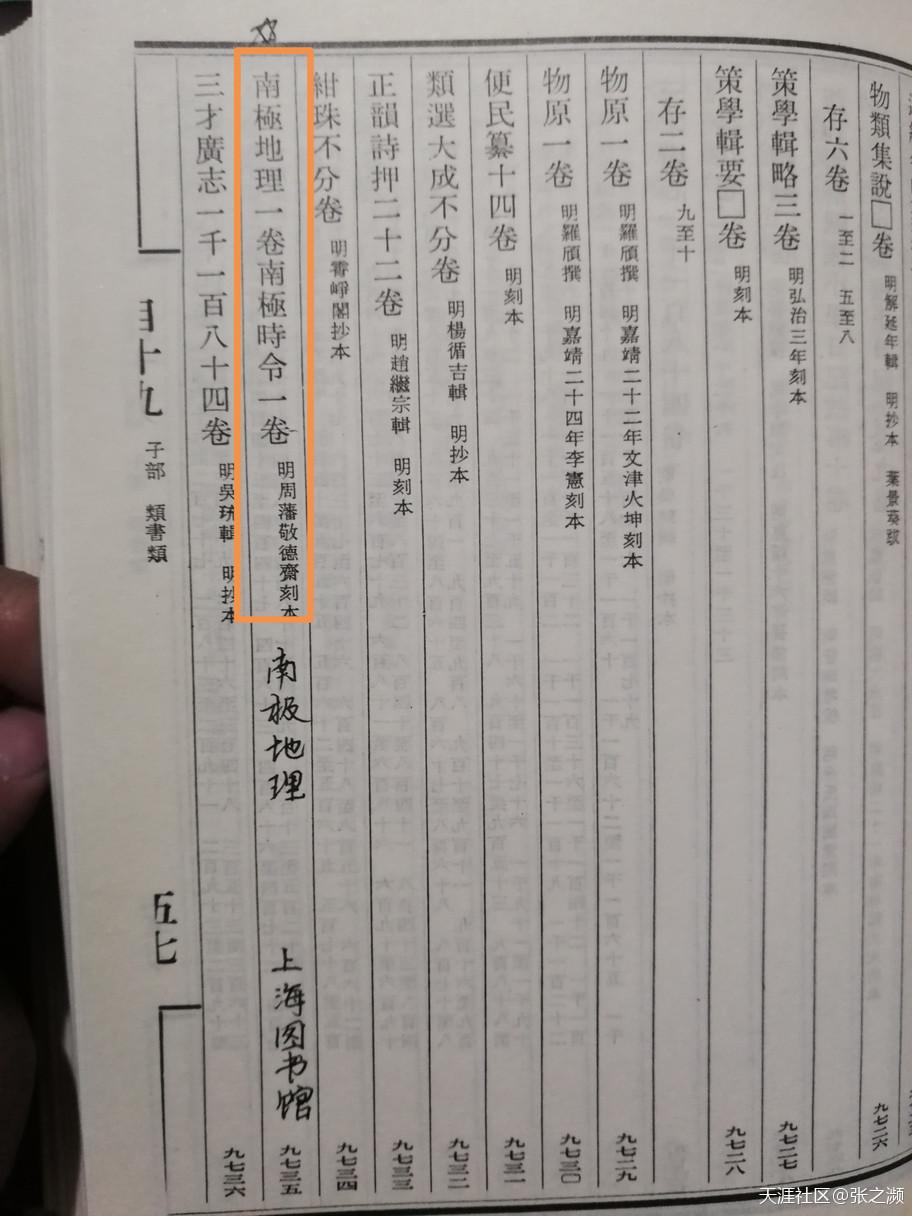 物類集說□卷 明解延年輯 明抄本 葉景葵跋 九七二六
存六卷 一至二 五至八
策學輯略三卷 明弘治三年刻本 九七二七
策學輯要□卷 明刻本 九七二八
存二卷 九至十
物原一卷 明羅頎撰 明嘉靖二十二年文津火坤刻本 九七二九
物原一卷 明羅頎撰 明嘉靖二十四年李憲刻本 九七三〇
便民纂十四卷 明刻本 九七三一
類選大成不分卷 明楊循吉輯 明抄本 九七三二
正韻詩押二十二卷 明趙繼宗輯 明刻本 九七三三
紺珠不分卷 明霄崢閣抄本 九七三四
南極地理一卷南極時令一卷 明周藩敬德齋刻本 九七三五
南极地理
上海图书馆
三才廣志一千一百八十四卷 明吳珫輯 明抄本 九七三六
目十九 子部 類書類
五七
天涯社区@张之濒